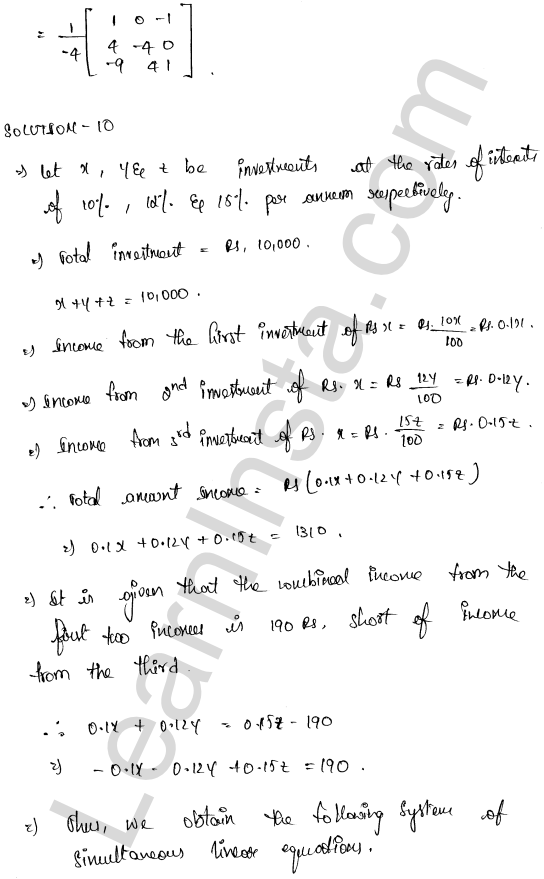 = 1/-4 [ 1 0 -1
4 -4 0
-9 4 1 ] .
SOLUTION - 10
⇒ Let x, y & z be investments at the rates of interests
of 10%, 12% & 15% per annum respectively.
⇒ Total investment = Rs, 10,000.
x + y + z = 10,000.
⇒ Income from the first investment of Rs x = Rs. 10x/100 = Rs. 0.1x.
⇒ Income from 2nd investment of Rs. x = Rs 12y/100 = Rs. 0.12y.
⇒ Income from 3rd investment of Rs. x = Rs. 15z/100 = Rs. 0.15z.
∴ Total amount income = Rs (0.1x + 0.12y + 0.15z)
⇒ 0.1x + 0.12y + 0.15z = 1310.
⇒ It is given that the combined income from the
first two incomes is 190 Rs, short of income
from the third.
∴ 0.1x + 0.12y = 0.15z - 190
⇒ -0.1x - 0.12y + 0.15z = 190.
⇒ Thus, we obtain the following system of
simultaneous linear equations.
LearnInsta.com